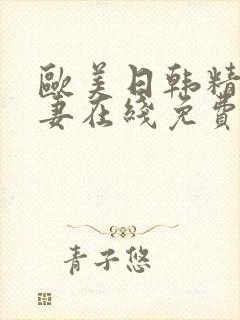 歐美日韩精
妻在綫免費
青子悠